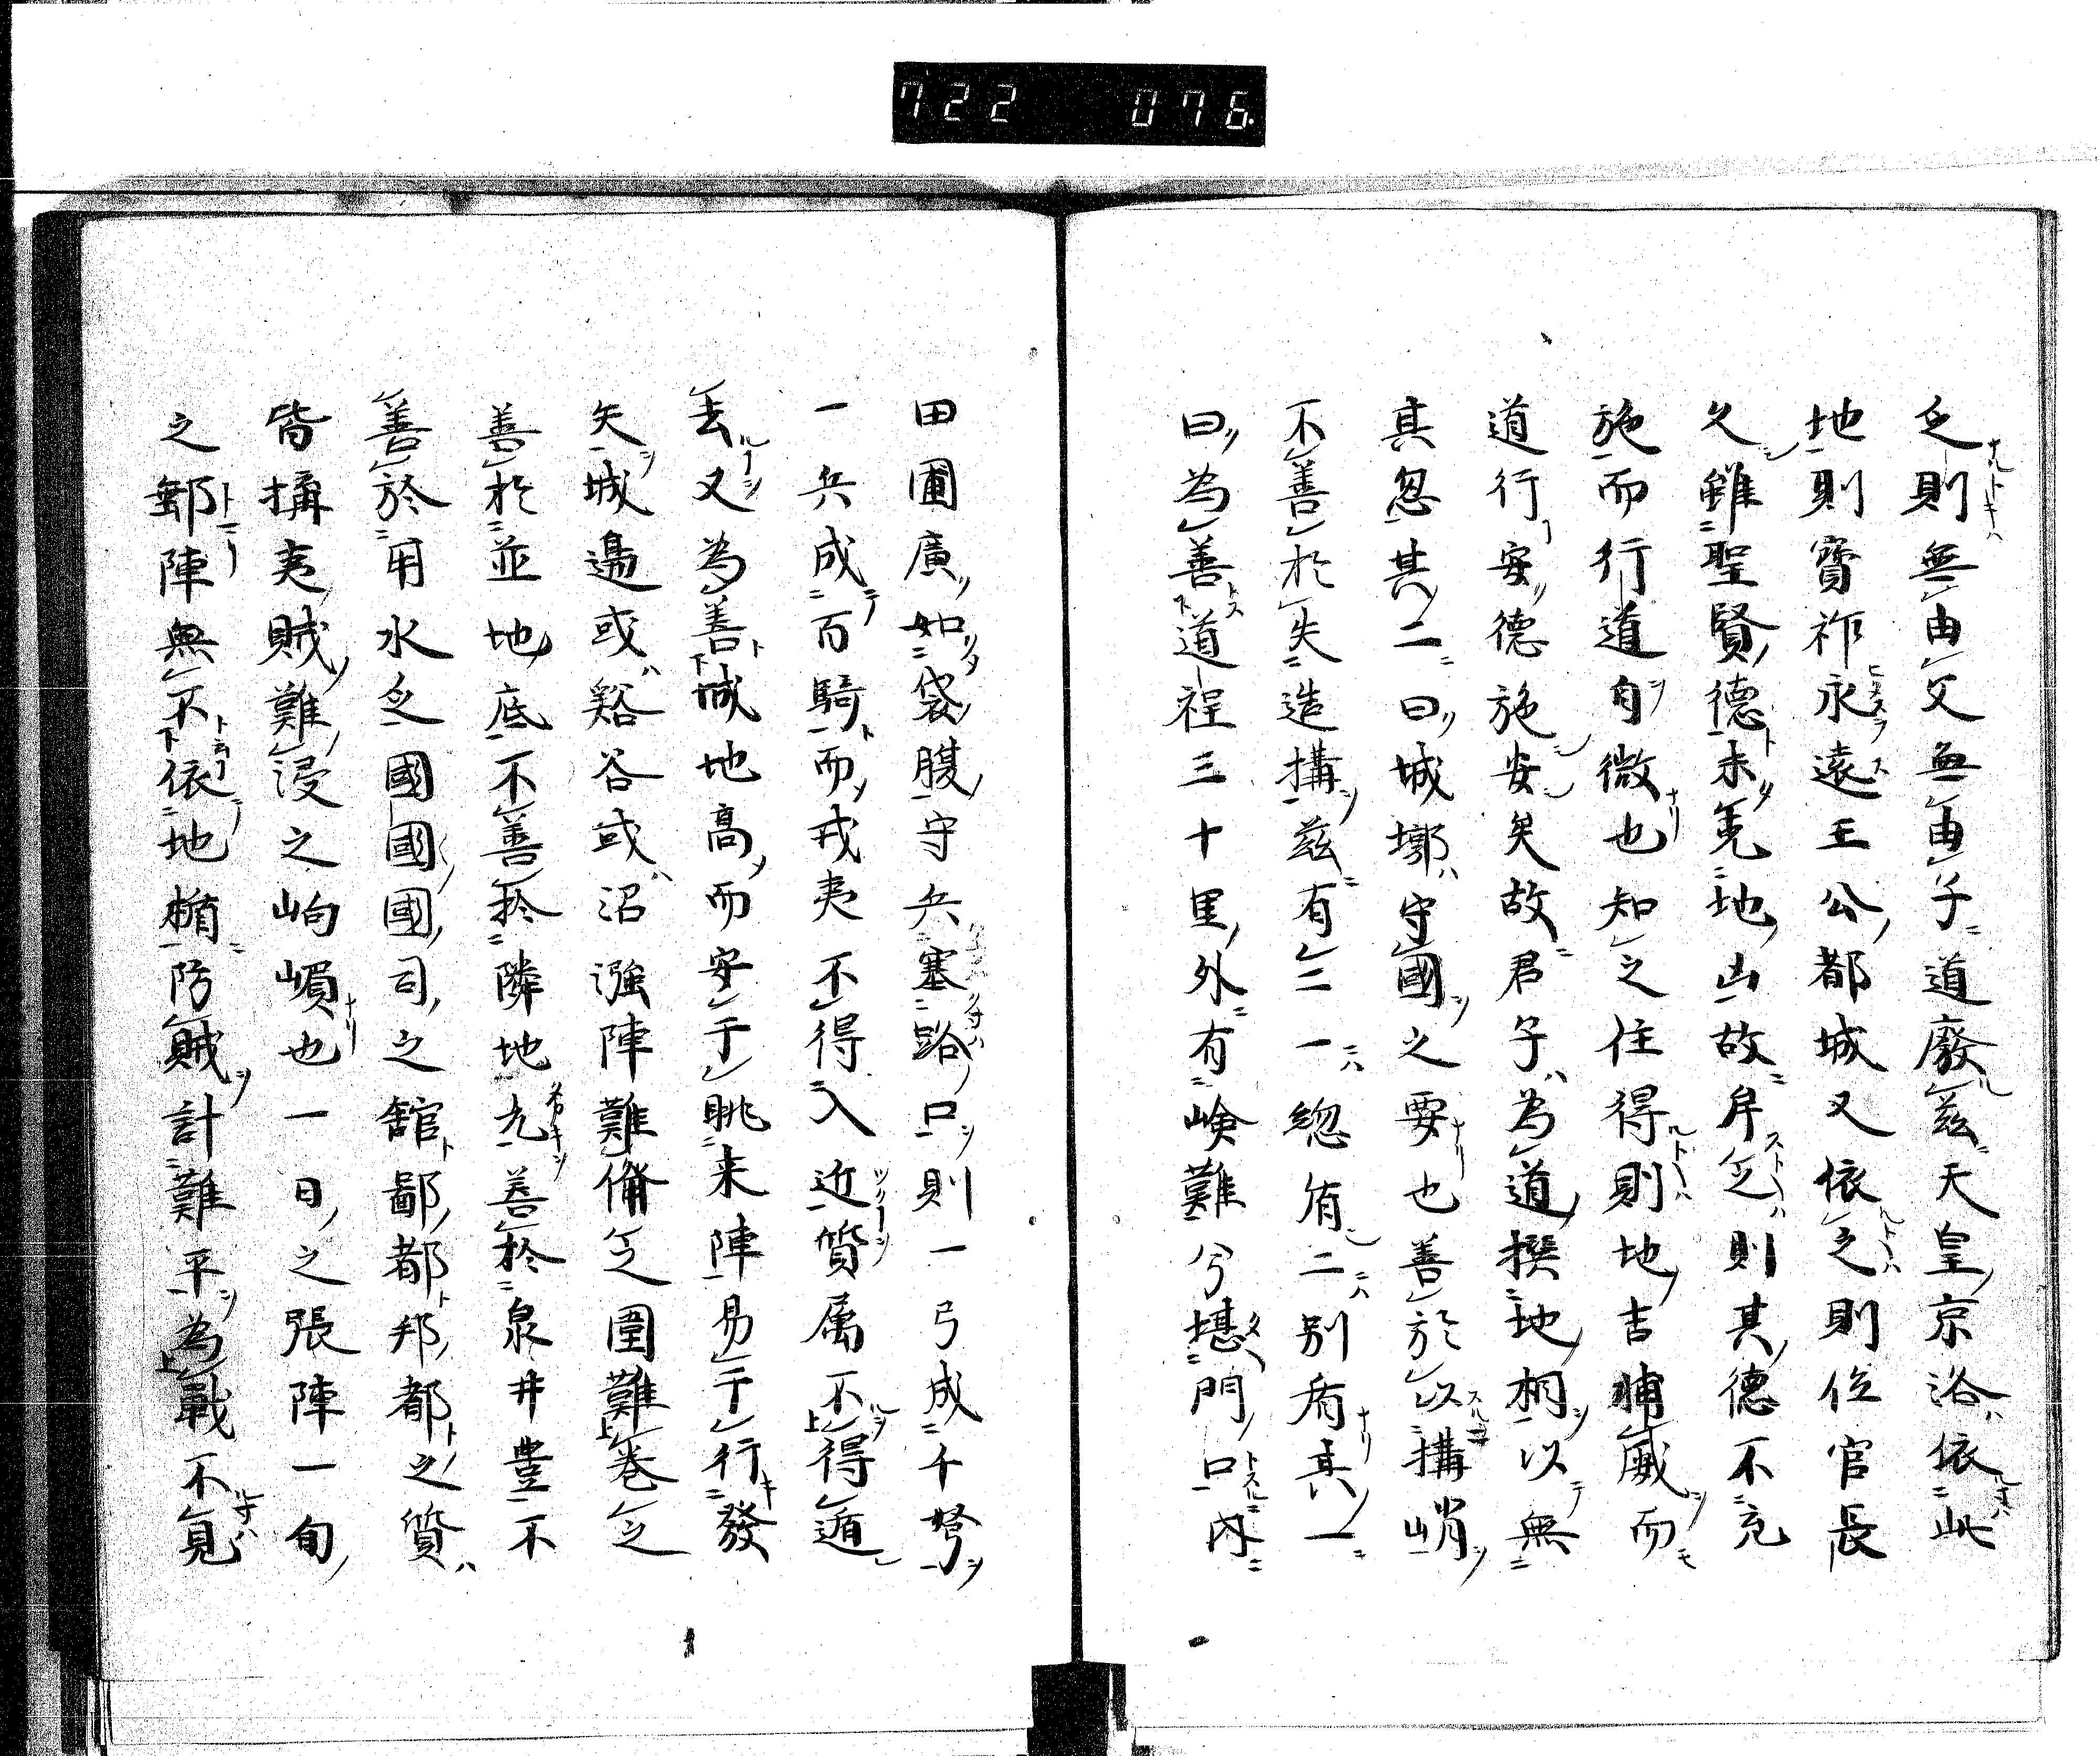 722 076
乏則無由父無由子道廢茲天皇京洛依此
地則寶祚永遠王公都城又依之則位官長
久雖聖賢德未免地山故序乏則其德不充
施而行道自微也知之住得則地吉補威而
道行安德施安矣故君子為道撰地相以無
其忽其二曰城墎守國之要也善於以構峭
不善於失造構茲有二一總有二別有其一
曰為善道程三十里外有嶮難兮堪門口內
田圃廣如袋腹守兵塞路口則一弓成千弩
一兵成百騎而戎夷不得入近質属不得遁
去又為善城地高而安于眺来陣易于行發
矢城邊或谿谷或沼漒陣難備乏圍難卷乏
善於並地底不善於隣地尢善於泉井豊不
善於用水乏國國國司之館鄙都邦都之質
皆摛夷賊難浸之岣嵋也一日之張陣一旬
之鄣陣無不依地楯防賊計難平為戰不見